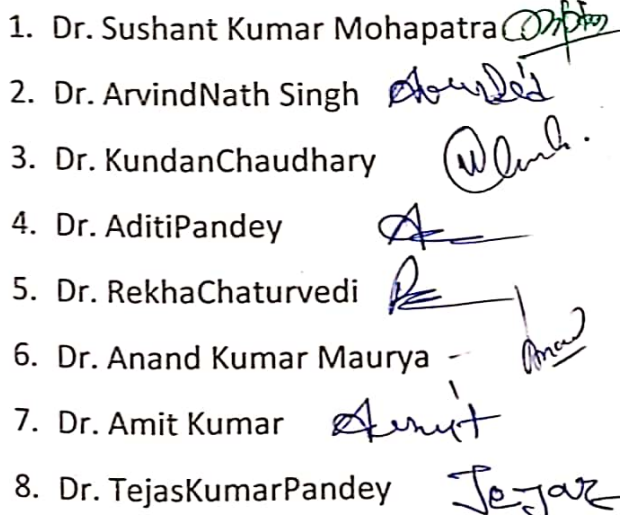 1. Dr. Sushant Kumar Mohapatra
2. Dr. ArvindNath Singh
3. Dr. KundanChaudhary
4. Dr. AditiPandey
5. Dr. RekhaChaturvedi
6. Dr. Anand Kumar Maurya -
7. Dr. Amit Kumar Amit
8. Dr. TejasKumarPandey Tejas